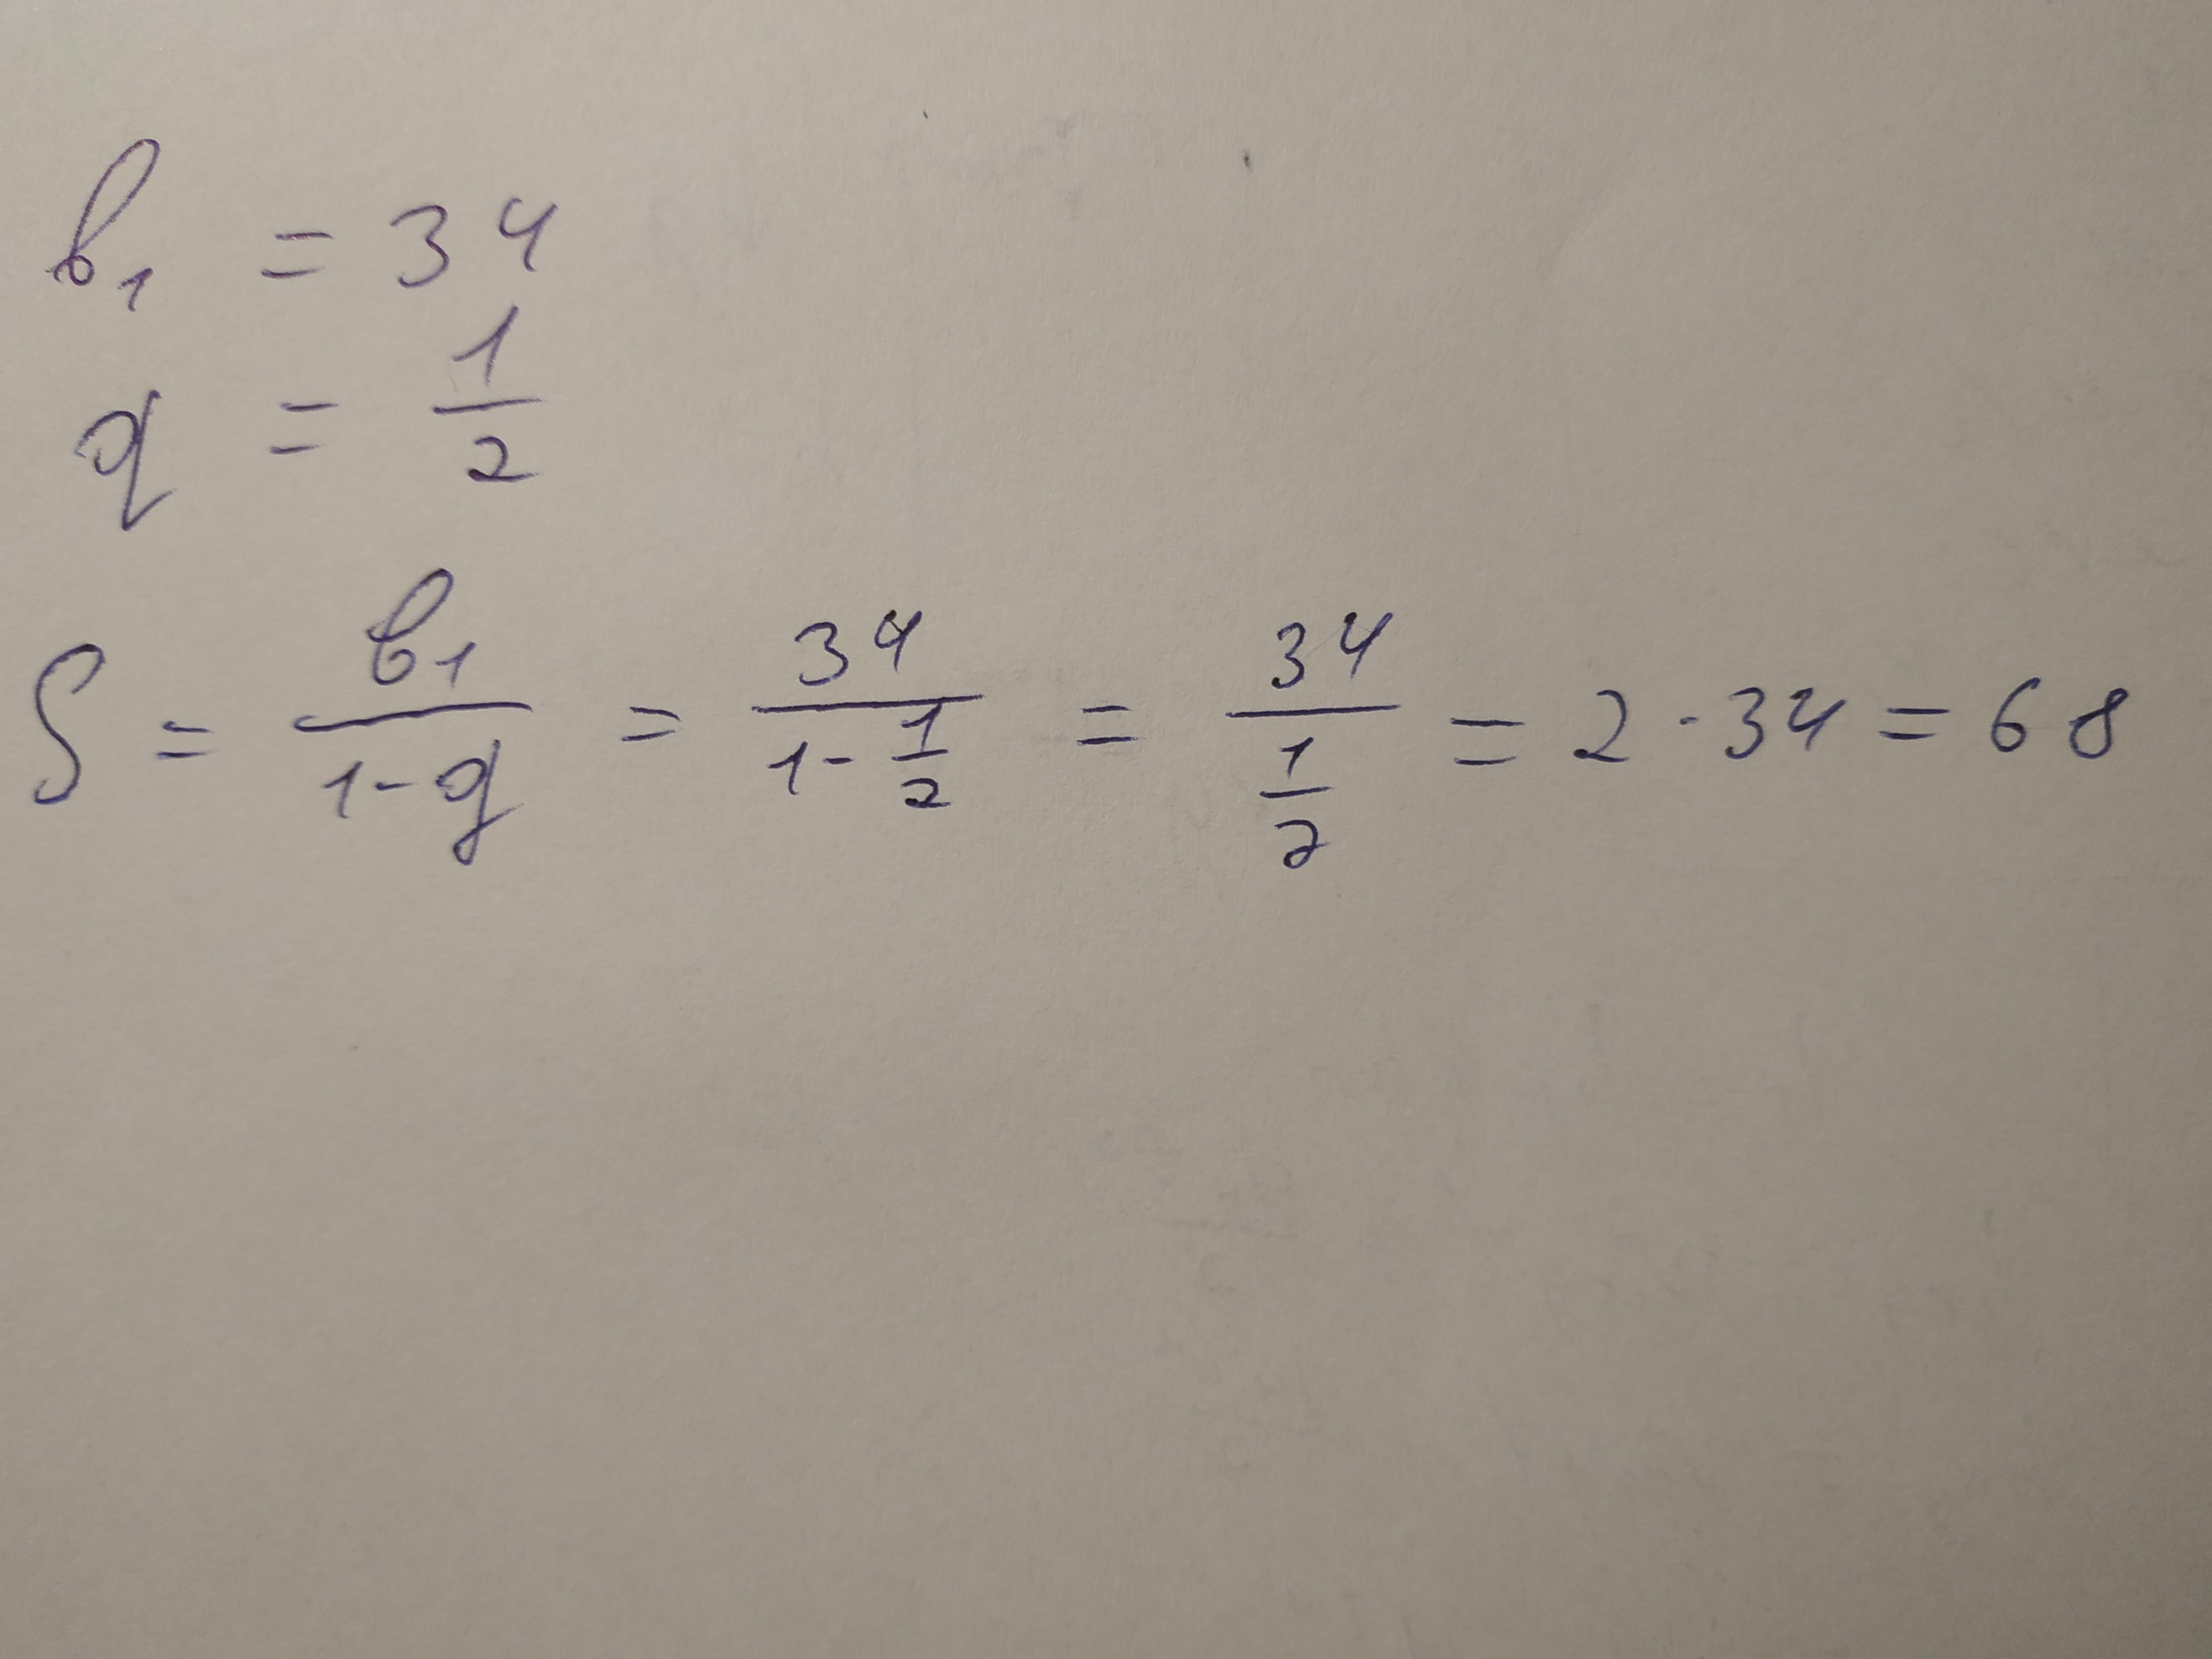 b₁ = 34
q = 1/2
S = b₁/(1-q) = 34/(1-1/2) = 34/(1/2) = 2·34 = 68